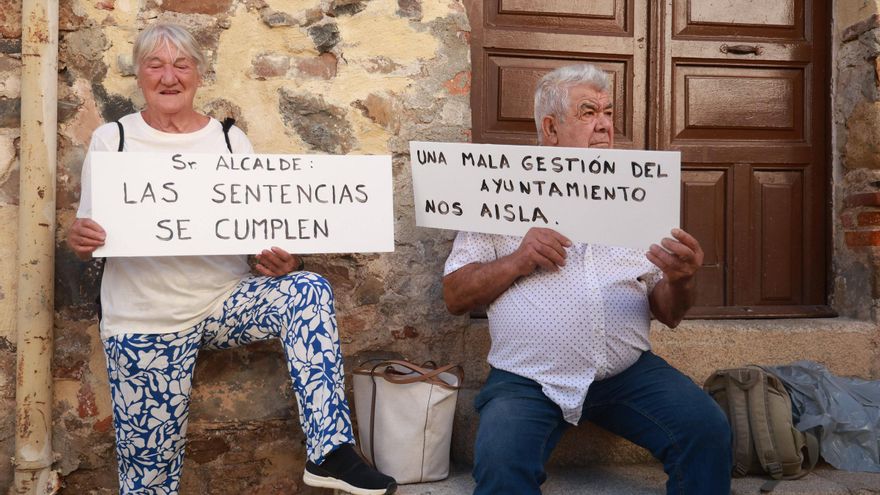 Sr. ALCALDE:
LAS SENTENCIAS
SE CUMPLEN
UNA MALA GESTIÓN DEL
AYUNTAMIENTO
NOS AISLA.